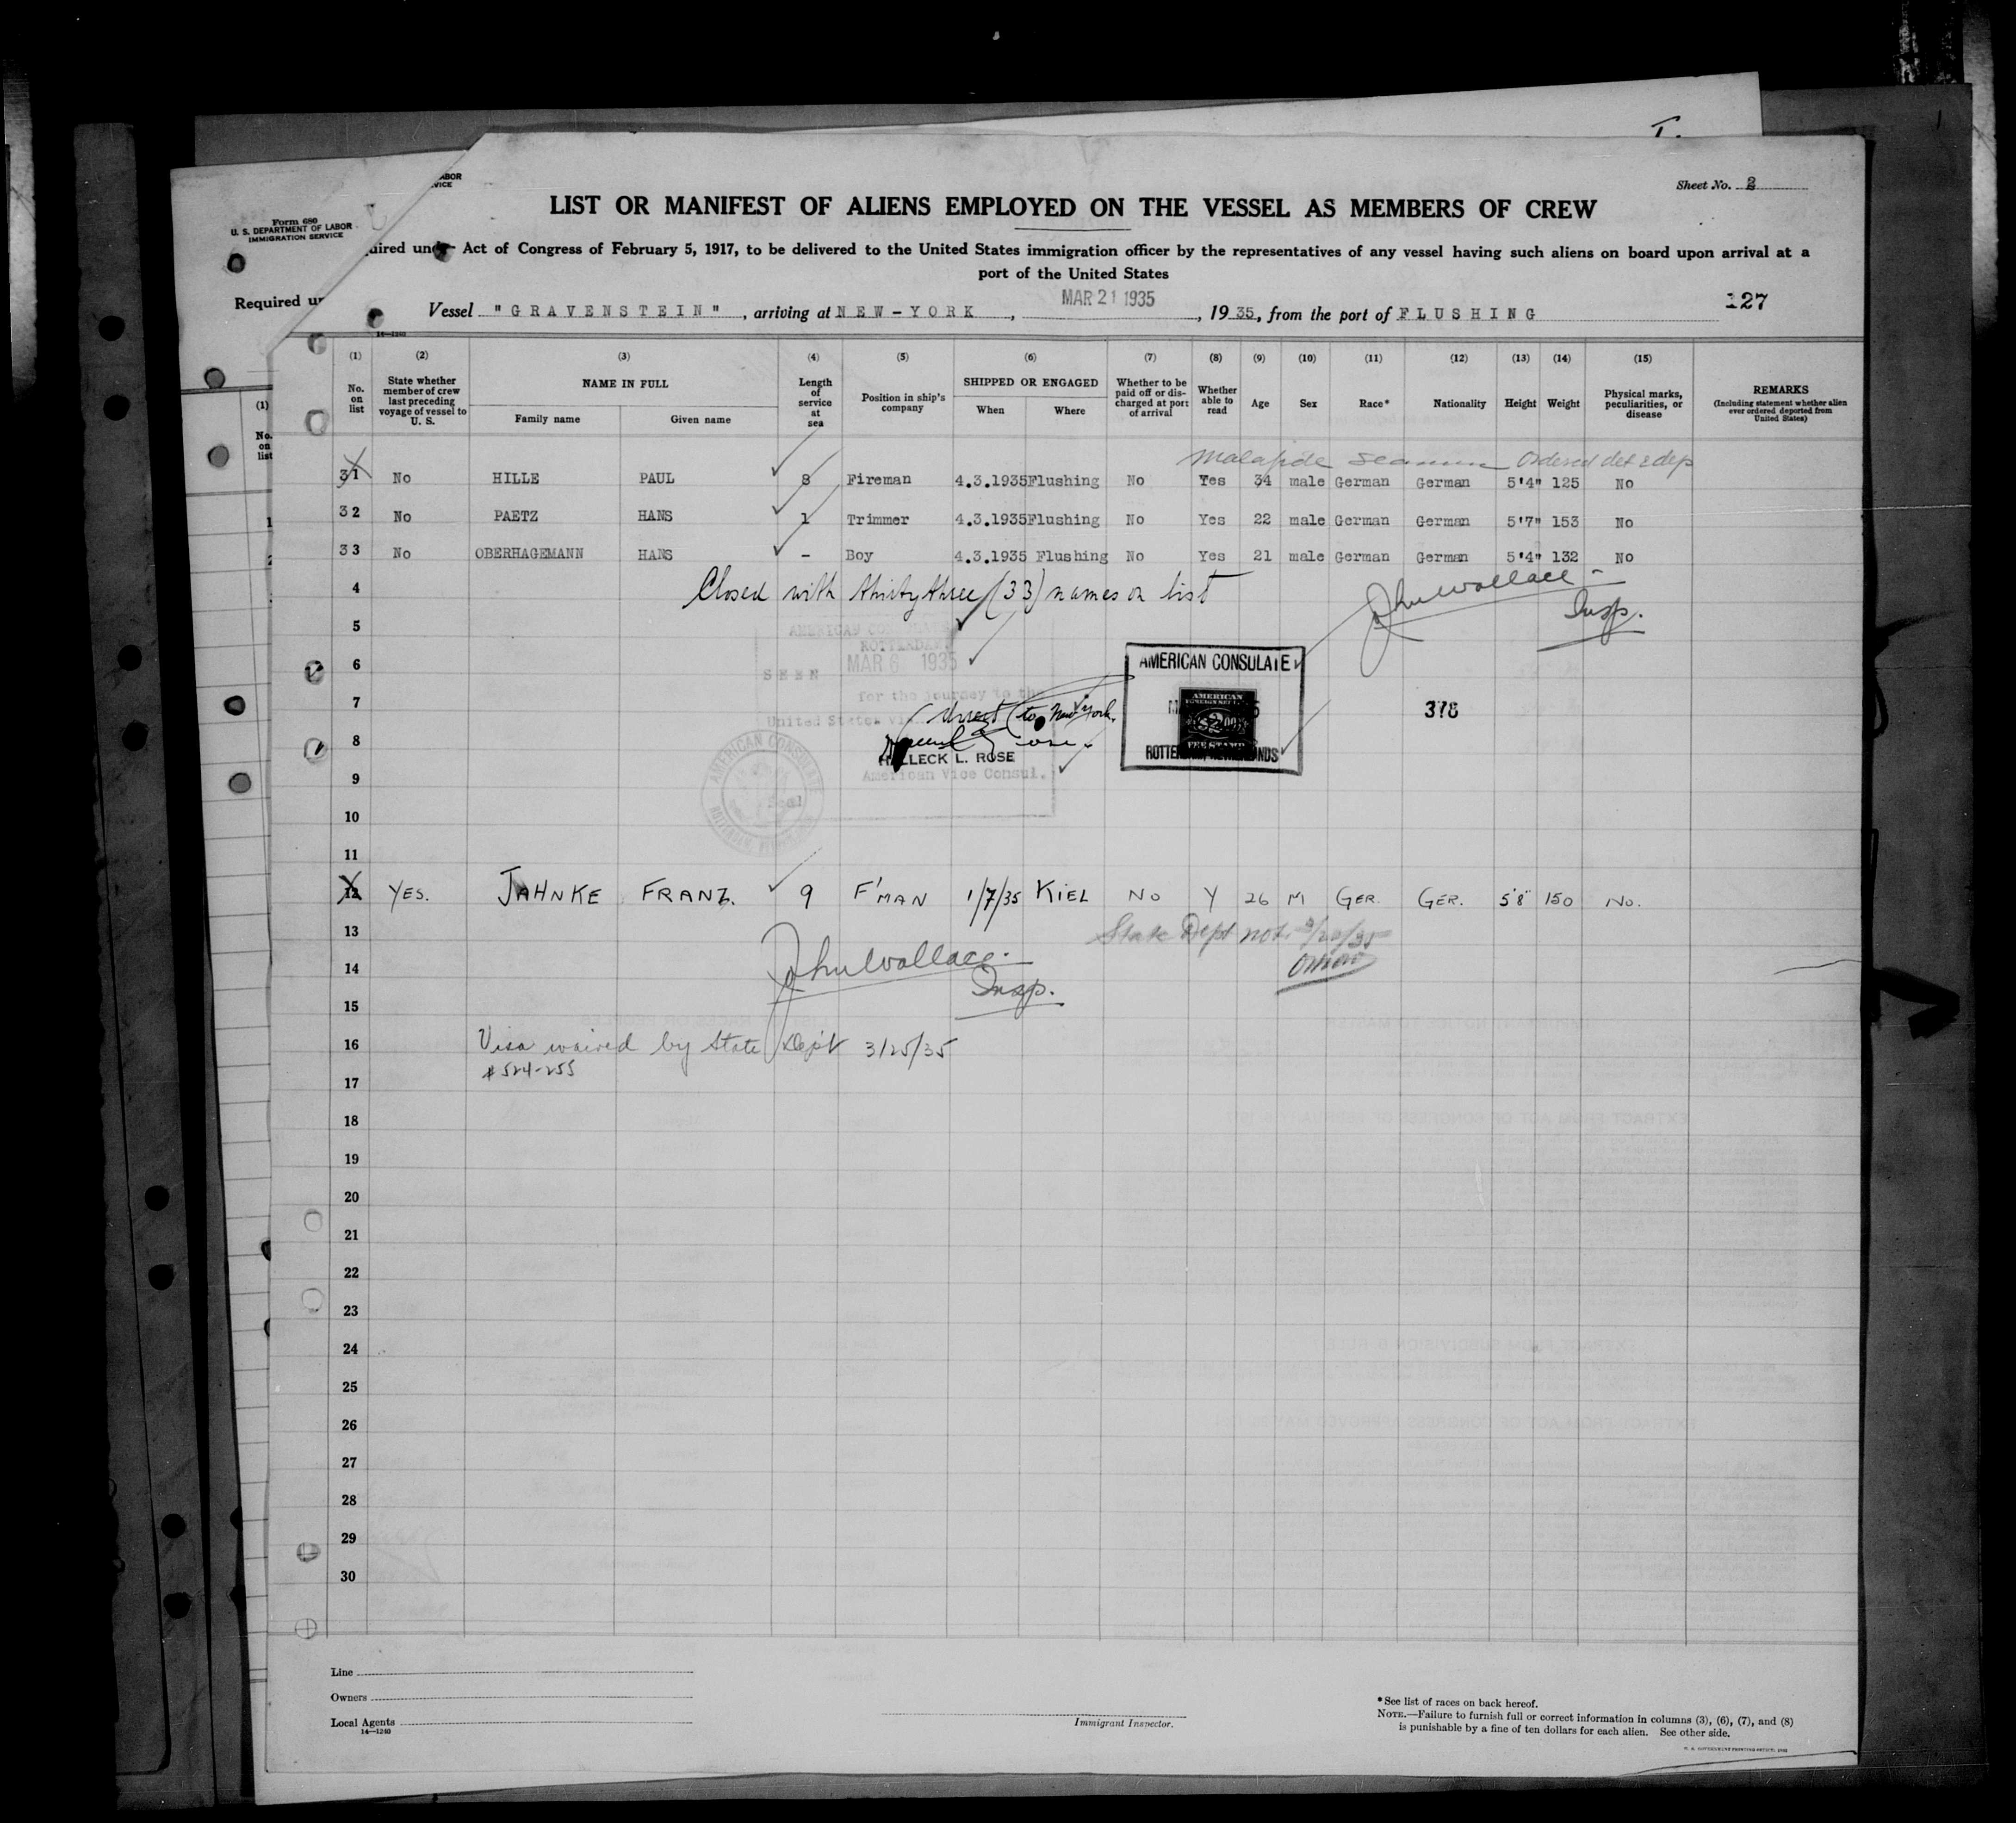 T.
ABOR
VICE
Form 680
U. S. DEPARTMENT OF LABOR
IMMIGRATION SERVICE
Sheet No. 2
LIST OR MANIFEST OF ALIENS EMPLOYED ON THE VESSEL AS MEMBERS OF CREW
uired under Act of Congress of February 5, 1917, to be delivered to the United States immigration officer by the representatives of any vessel having such aliens on board upon arrival at a
port of the United States
Required un
Vessel "GRAVENSTEIN", arriving at NEW-YORK, MAR 21 1935, 1935, from the port of FLUSHING
127
14—1240
(1) (2) (3) (4) (5) (6) (7) (8) (9) (10) (11) (12) (13) (14) (15)
No. on list
State whether member of crew last preceding voyage of vessel to U. S.
NAME IN FULL
Family name Given name
Length of service at sea
Position in ship's company
SHIPPED OR ENGAGED
When Where
Whether to be paid off or discharged at port of arrival
Whether able to read
Age
Sex
Race*
Nationality
Height
Weight
Physical marks, peculiarities, or disease
REMARKS
(Including statement whether alien ever ordered deported from United States)
(1)
No. on list
1
2
Malafide seaman Ordered det & dep
31 No HILLE PAUL 8 Fireman 4.3.1935 Flushing No Yes 34 male German German 5'4" 125 No
32 No PAETZ HANS 1 Trimmer 4.3.1935 Flushing No Yes 22 male German German 5'7" 153 No
33 No OBERHAGEMANN HANS - Boy 4.3.1935 Flushing No Yes 21 male German German 5'4" 132 No
4 Closed with thirty three (33) names on list John Wallace Insp.
5
AMERICAN CONSULATE
ROTTERDAM
6 SEEN MAR 6 1935
for the journey to the
7 United States via
(direct) to New York.
8
HALLECK L. ROSE
9 American Vice Consul.
AMERICAN CONSULATE
Seal
AMERICAN CONSULATE
AMERICAN
FOREIGN SERVICE
FEE STAMP
ROTTERDAM, NETHERLANDS
378
10
11
12 YES. JAHNKE FRANZ. 9 F'MAN 1/7/35 KIEL NO Y 26 M GER. GER. 5'8" 150 NO.
13 State Dept not.
14 John Wallace Insp.
15
16 Visa waived by State Dept 3/25/35
#524-255
17
18
19
20
21
22
23
24
25
26
27
28
29
30
Line
Owners
Local Agents
14—1240
Immigrant Inspector.
*See list of races on back hereof.
NOTE.—Failure to furnish full or correct information in columns (3), (6), (7), and (8)
is punishable by a fine of ten dollars for each alien. See other side.